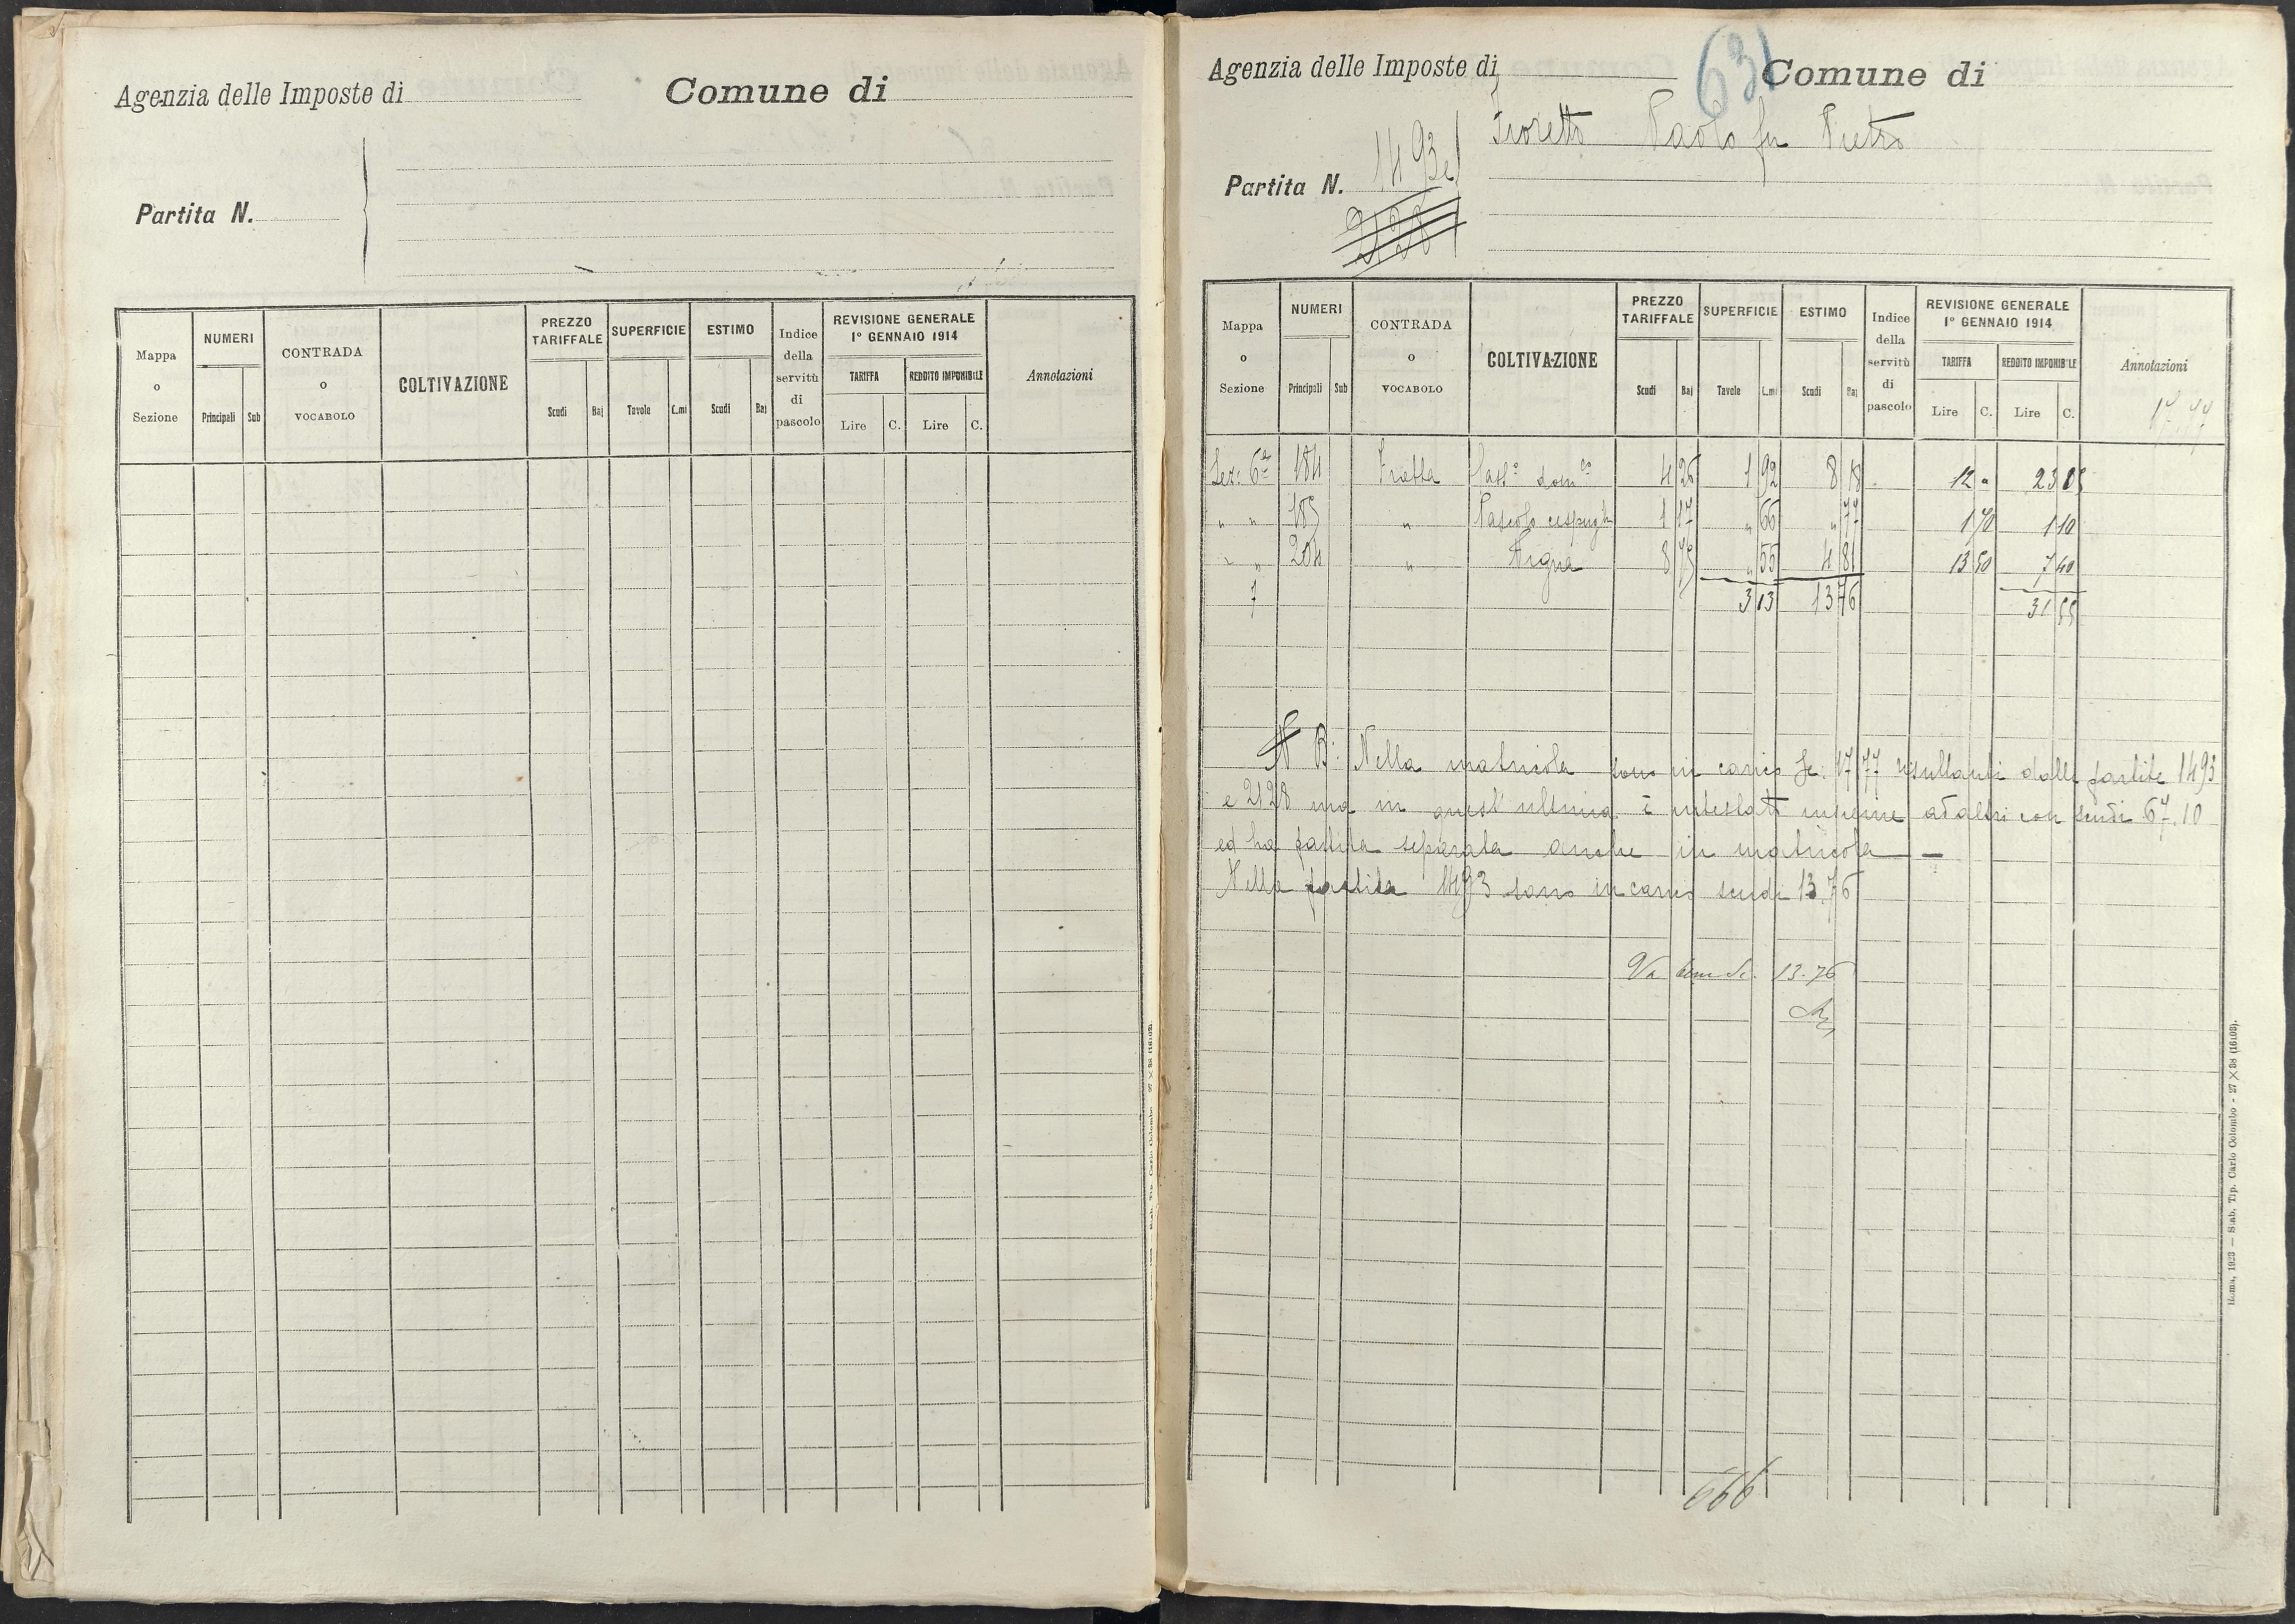 Agenzia delle Imposte di
Comune di
Partita N.
Mappa o Sezione
NUMERI
Principali Sub
CONTRADA o VOCABOLO
COLTIVAZIONE
PREZZO TARIFFALE
Scudi Baj
SUPERFICIE
Tavole C.mi
ESTIMO
Scudi Baj
Indice della servitù di pascolo
REVISIONE GENERALE
1° GENNAIO 1914
TARIFFA
REDDITO IMPONIBILE
Lire C. Lire C.
Annotazioni
Agenzia delle Imposte di
631
Comune di
Fioretto Paolo fu Pietro
Partita N. 1493
2128
Mappa o Sezione
NUMERI
Principali Sub
CONTRADA o VOCABOLO
COLTIVAZIONE
PREZZO TARIFFALE
Scudi Baj
SUPERFICIE
Tavole C.mi
ESTIMO
Scudi Baj
Indice della servitù di pascolo
REVISIONE GENERALE
1° GENNAIO 1914
TARIFFA
REDDITO IMPONIBILE
Lire C. Lire C.
Annotazioni
17.77
Sez: 6a 184 4 26 1 92 8 18 12 " 23 05
" " 185 " Pascolo cespugl 1 17 " 66 " 77 1 70 1 10
" " 204 " Vigna 8 75 " 55 4 81 13 50 7 40
3 13 13 76 31 55
N B: Nella matricola sono in carico Sc: 17.77 resultanti dalle partite 1493
e 2128 ma in quest'ultima è intestato insieme ad altri con scudi 67.10
ed ha partita separata anche in matricola —
Nella partita 1493 sono in carico scudi 13.76
Va bene Sc. 13.76
666
Roma, 1923 — Stab. Tip. Carlo Colombo - 27 × 38 (16108).